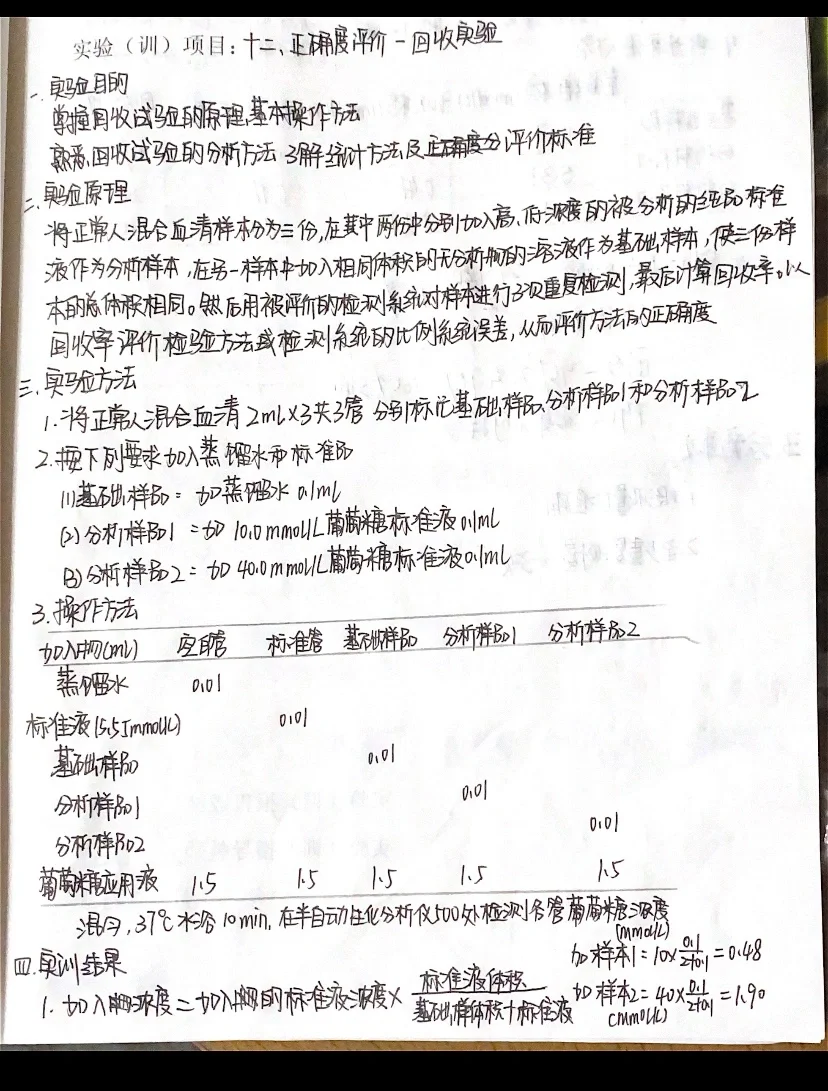 实验（训）项目：十二、正确度评价－回收实验
一、实验目的
掌握回收试验的原理、基本操作方法
熟悉回收试验的分析方法 了解统计方法及正确度分评价标准
二、实验原理
将正常人混合血清样本分为三份,在其中两份中分别加入高、低浓度的被分析的纯品标准
液作为分析样本,在另一样本中加入相同体积的无分析物的溶液作为基础样本,使三份样
本的总体积相同。然后用被评价的检测系统对样本进行3次重复检测,最后计算回收率。以
回收率评价检验方法或检测系统的比例系统误差,从而评价方法的正确度
三、实验方法
1.将正常人混合血清2mL×3共3管 分别标记基础样品、分析样品1和分析样品2
2.按下列要求加入蒸馏水和标准品
(1)基础样品= 加蒸馏水 0.1mL
(2)分析样品1 =加 10.0mmol/L葡萄糖标准液0.1mL
(3)分析样品2= 加 40.0mmol/L葡萄糖标准液0.1mL
3.操作方法
加入物(mL) 空白管 标准管 基础样品 分析样品1 分析样品2
蒸馏水 0.01
标准液(5.55mmol/L) 0.01
基础样品 0.01
分析样品1 0.01
分析样品2 0.01
葡萄糖应用液 1.5 1.5 1.5 1.5 1.5
混匀,37℃水浴10min,在半自动生化分析仪500处检测各管葡萄糖浓度
(mmol/L)
四.实训结果
加样本1=10×0.1/2+0.1=0.48
1.加入浓度=加入的标准液浓度×标准液体积/基础样体积+标准液
加样本2=40×0.1/2+0.1=1.90
(mmol/L)